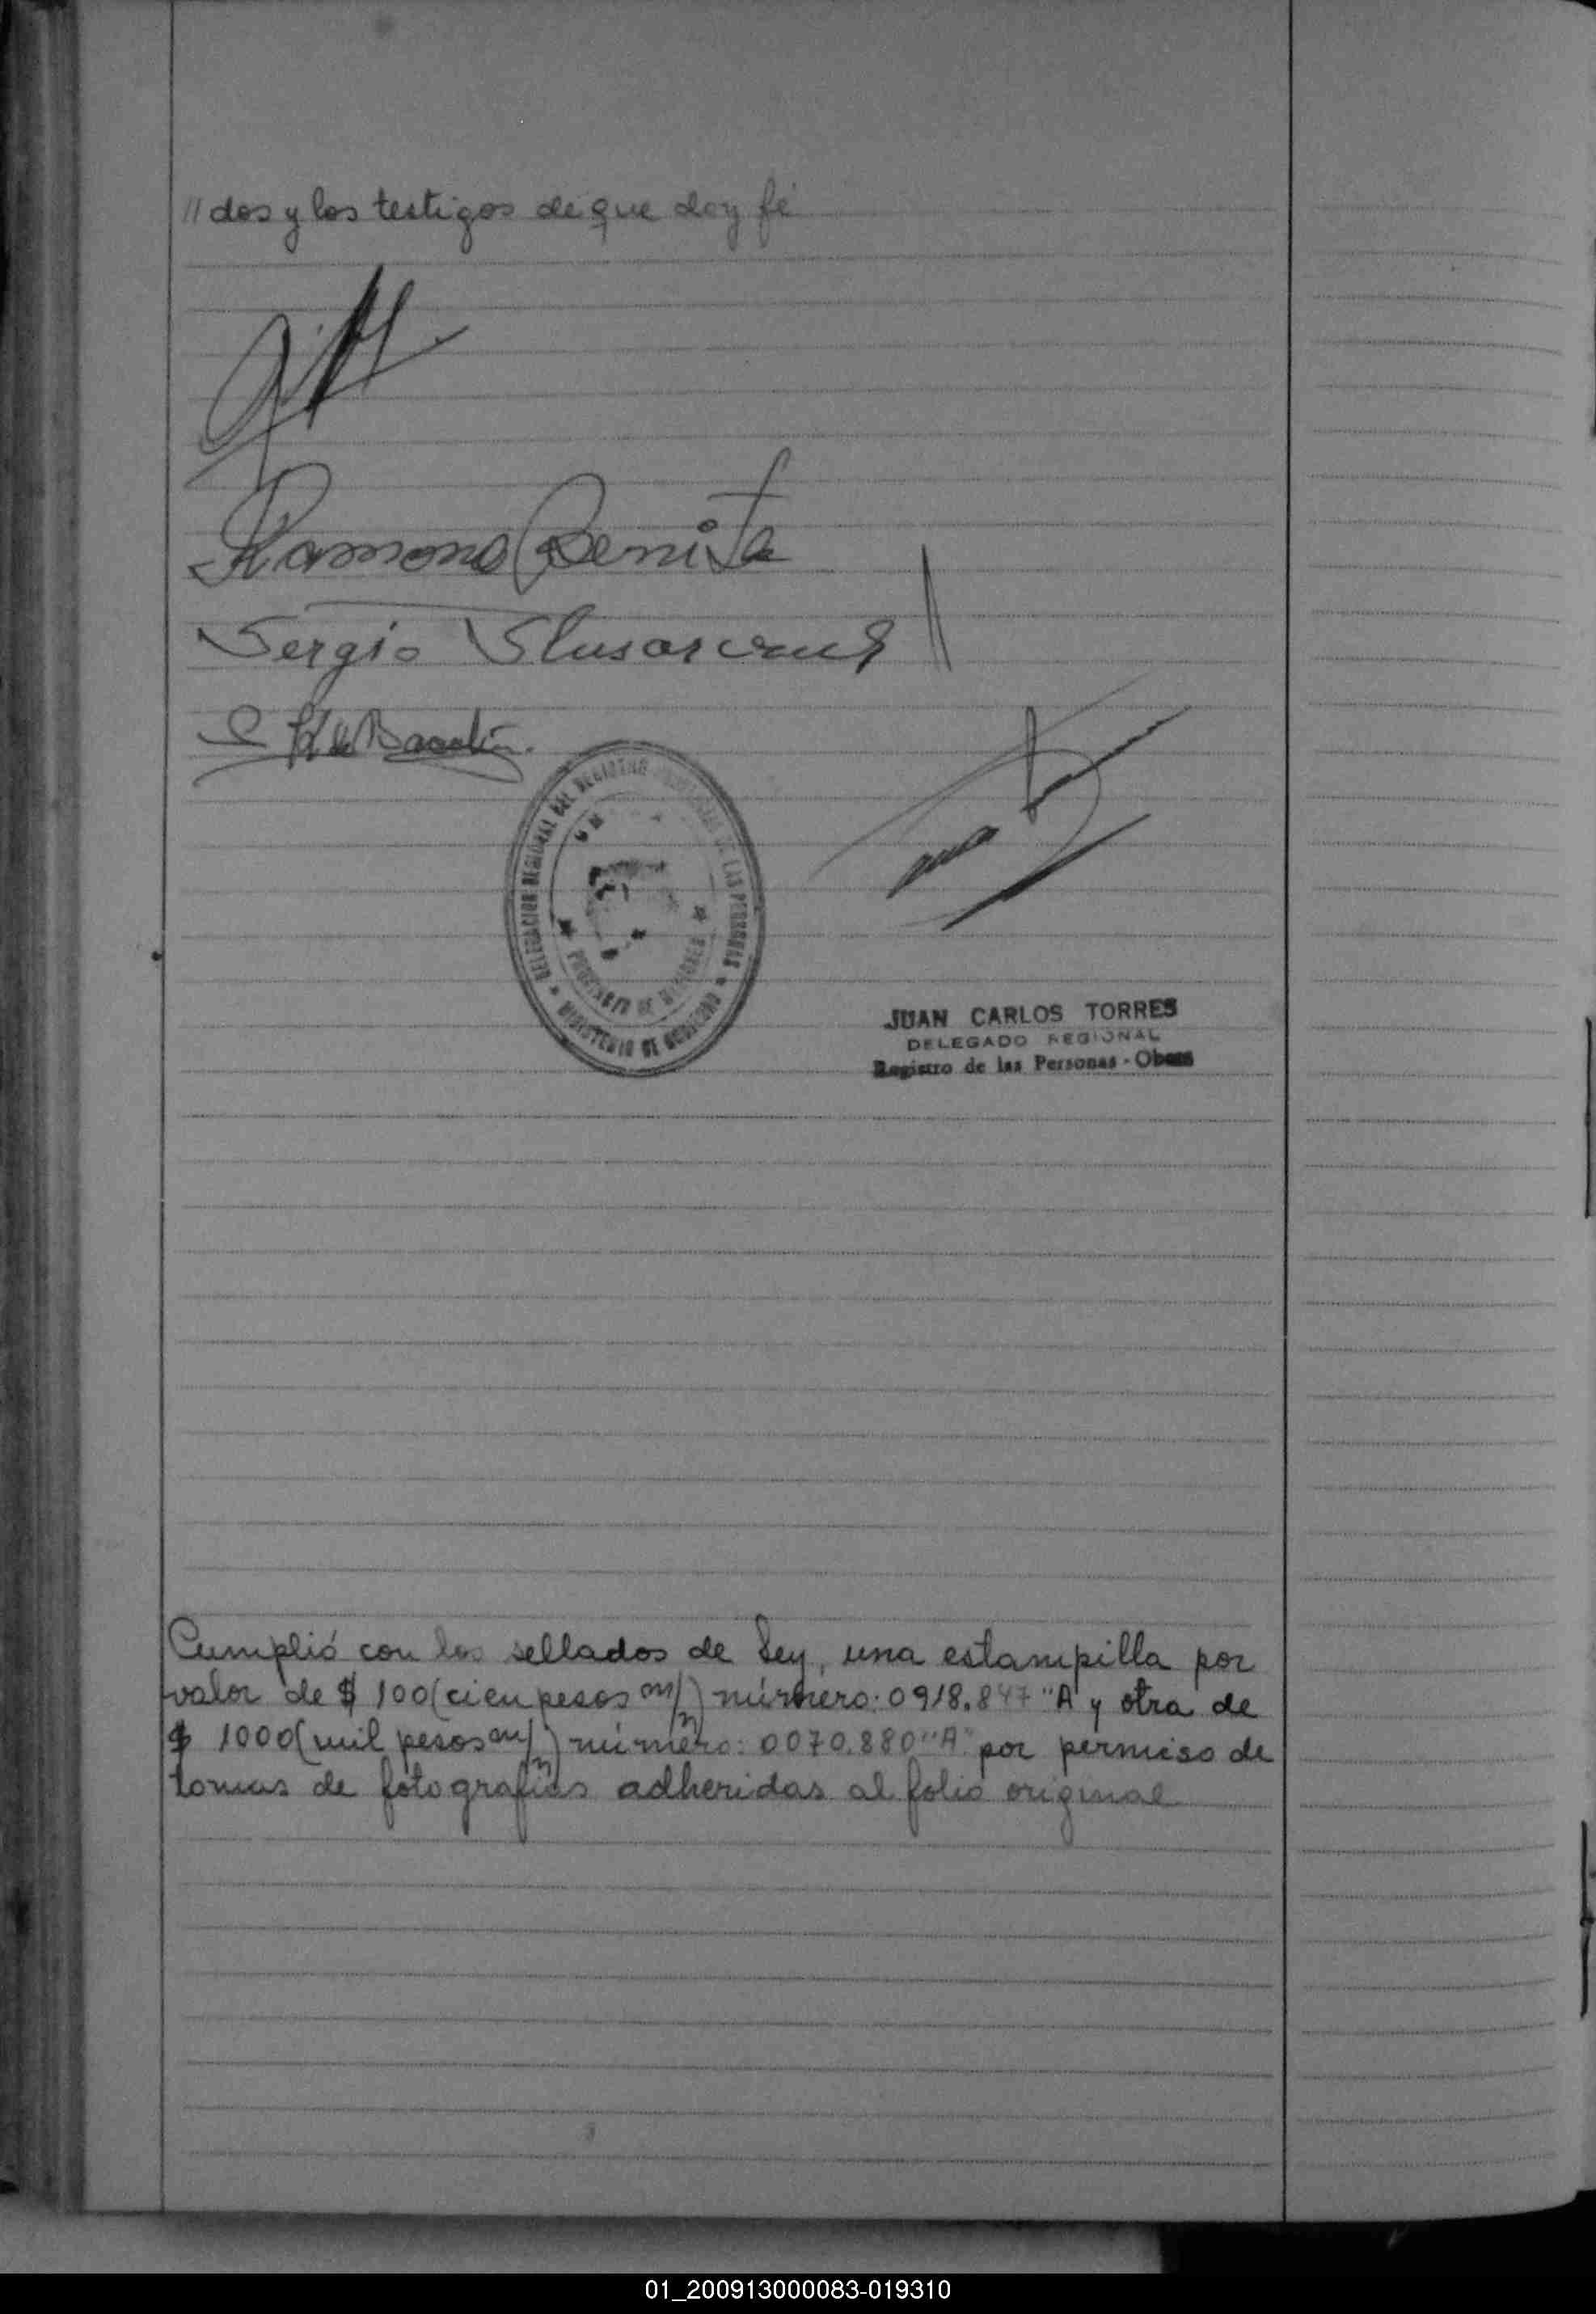 // dos y los testigos de que doy fé
Ramona Benite
Sergio
S. K. de
DELEGACION REGIONAL DEL REGISTRO PROVINCIAL DE LAS PERSONAS
PROVINCIA DE MISIONES
MINISTERIO DE GOBIERNO
JUAN CARLOS TORRES
DELEGADO REGIONAL
Registro de las Personas - Obera
Cumplió con los sellados de Ley, una estampilla por
valor de $ 100 (cien pesos m/n) número: 0918.847 "A" y otra de
$ 1000 (mil pesos m/n) número: 0070.880 "A" por permiso de
tomas de fotografias adheridas al folio original
01_200913000083-019310